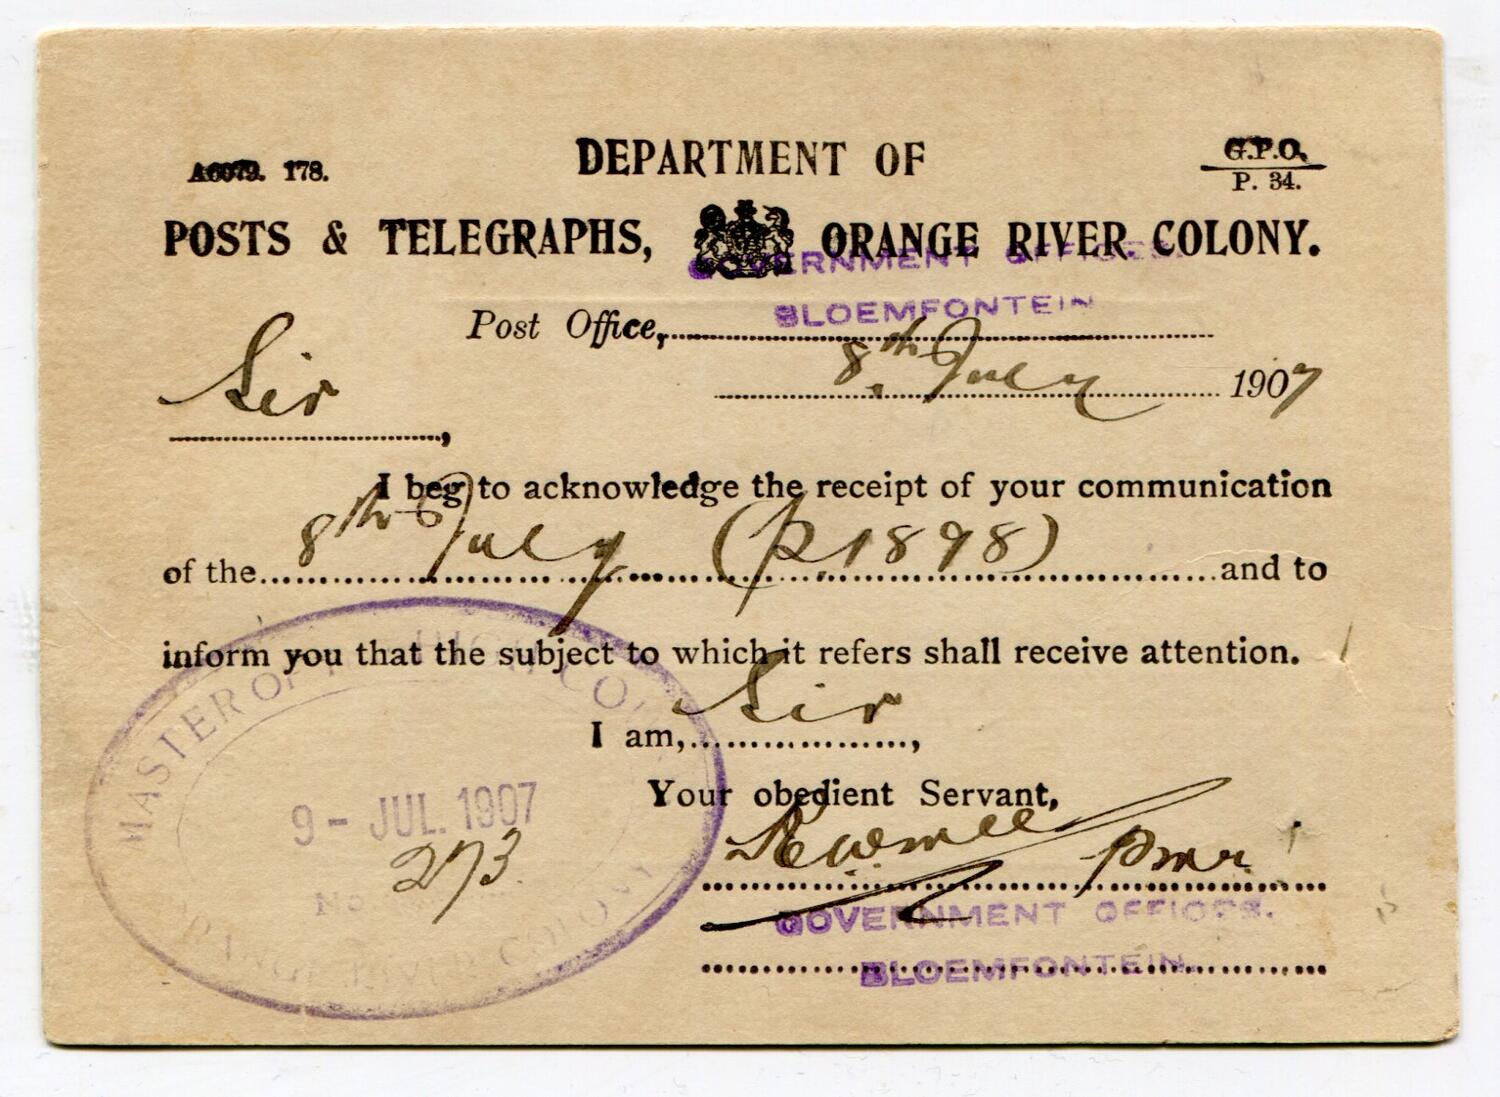 178.
DEPARTMENT OF
G.P.O.
P. 34.
POSTS & TELEGRAPHS, ORANGE RIVER COLONY.
GOVERNMENT OFFICES.
BLOEMFONTEIN
Post Office,
Sir,
8th July 1907
I beg to acknowledge the receipt of your communication
of the 8th July (P. 1898) and to
inform you that the subject to which it refers shall receive attention.
I am, Sir,
Your obedient Servant,
GOVERNMENT OFFICES.
BLOEMFONTEIN.
MASTER OF HIGH CO
9 - JUL. 1907
No 273
ORANGE RIVER COLONY